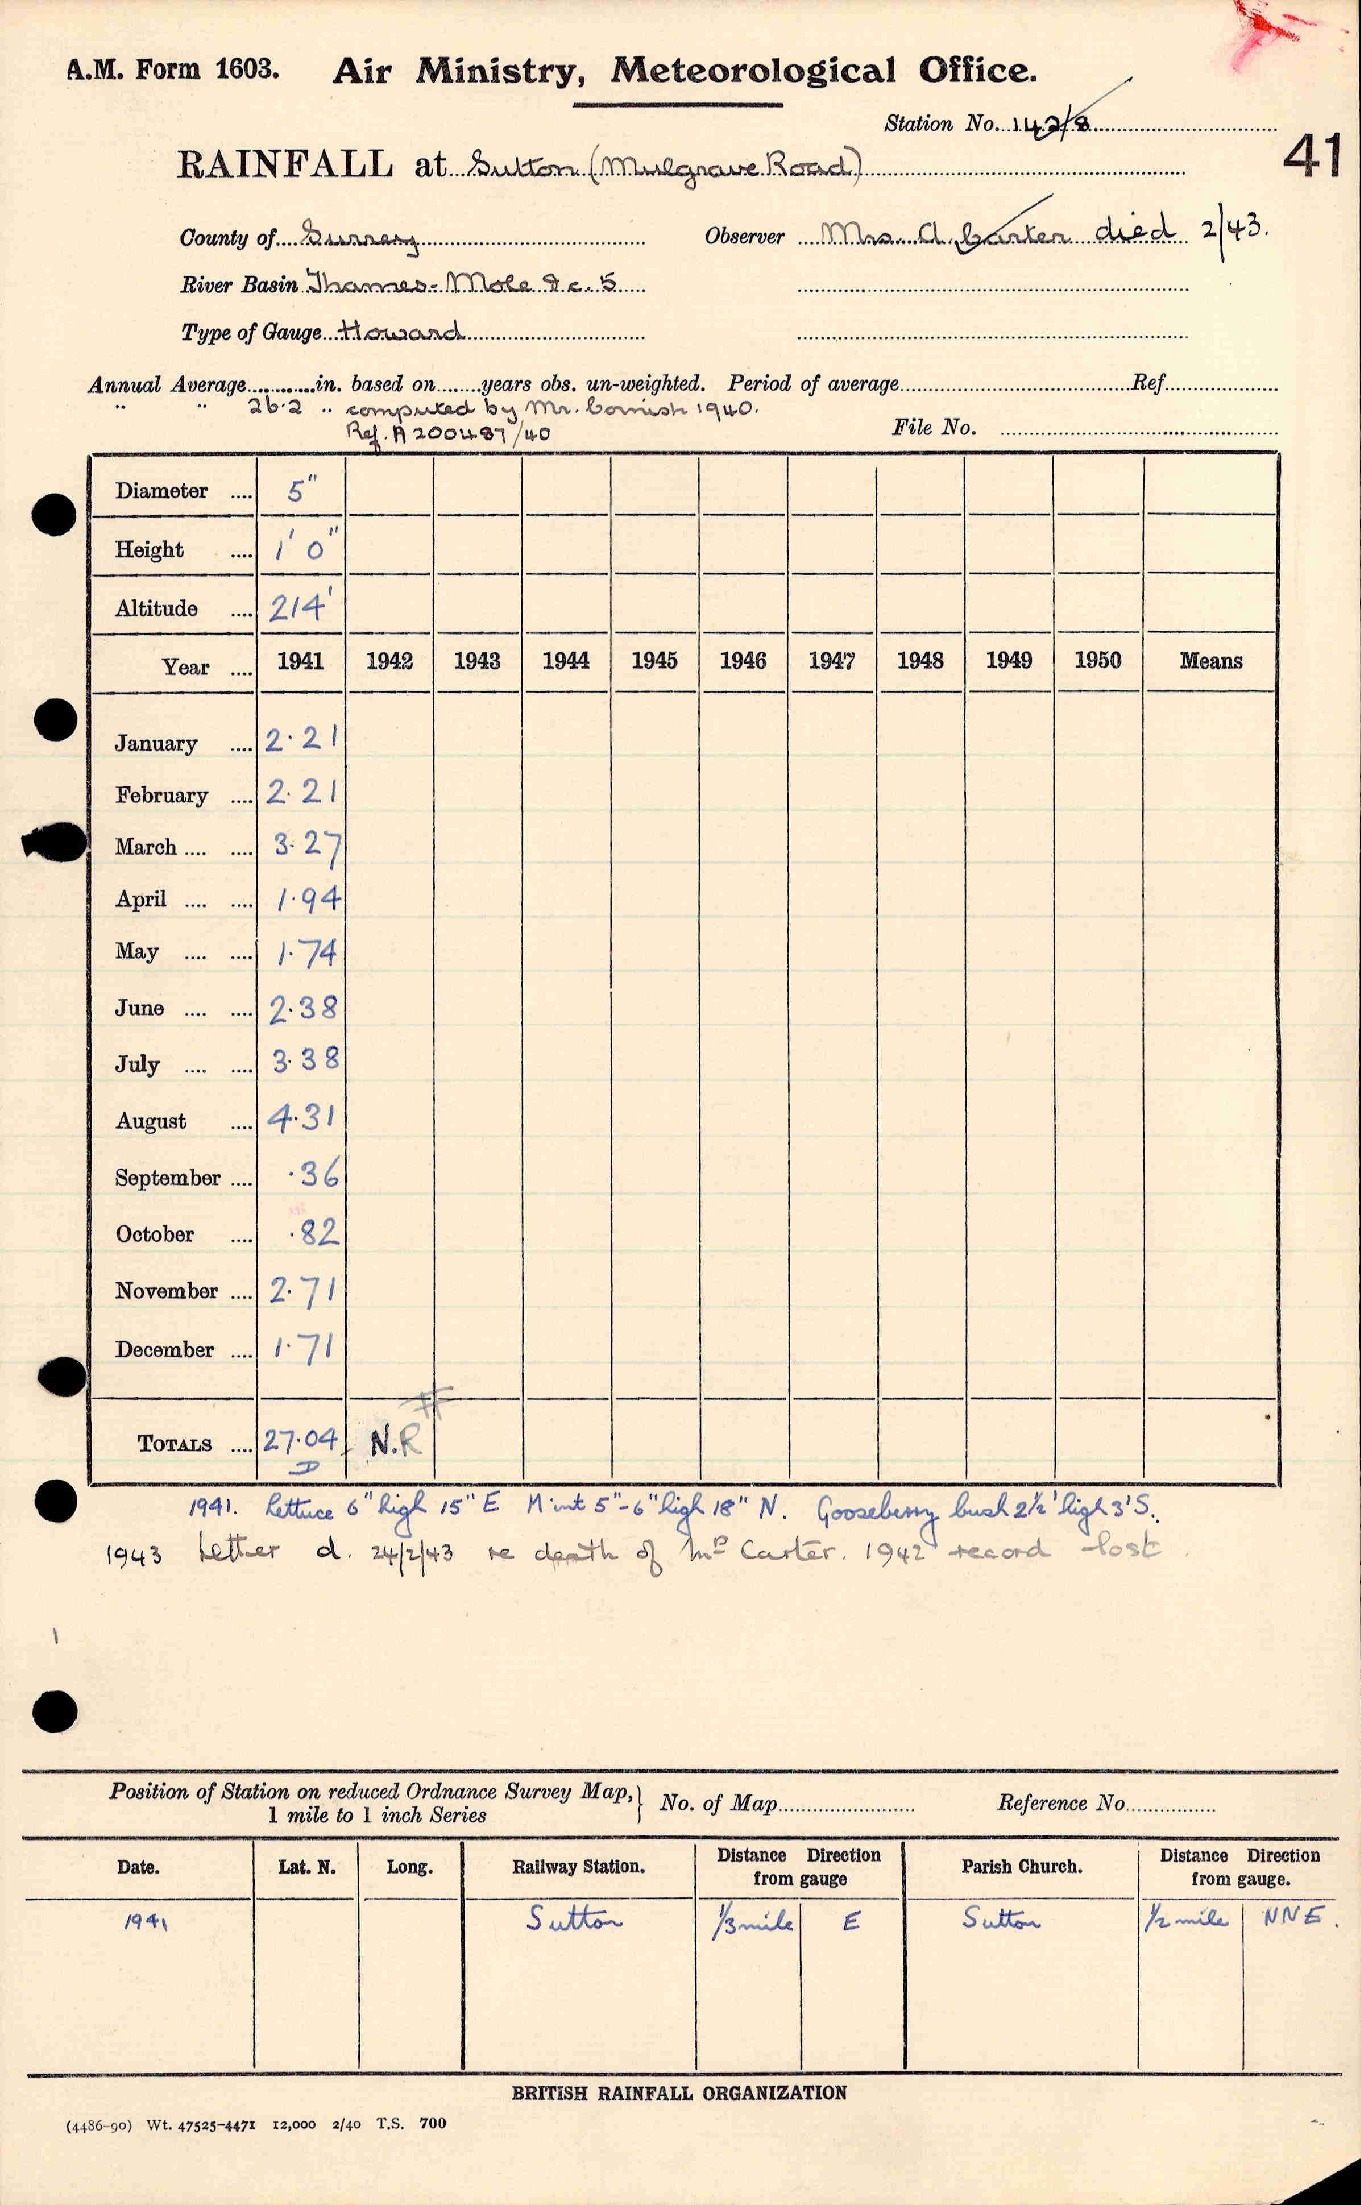 A.M. Form 1603. Air Ministry, Meteorological Office.
Station No. 142/8
41
RAINFALL at Sutton (Mulgrave Road)
County of Surrey Observer Mrs. A. Carter died 2/43.
River Basin Thames - Mole &c. 5
Type of Gauge Howard
Annual Average in. based on years obs. un-weighted. Period of average Ref.
" " 26.2 " computed by Mr. Cornish 1940.
Ref. A 200487/40 File No.
Diameter 5"
Height 1' 0"
Altitude 214'
Year 1941 1942 1943 1944 1945 1946 1947 1948 1949 1950 Means
January 2.21
February 2.21
March 3.27
April 1.94
May 1.74
June 2.38
July 3.38
August 4.31
September .36
October .82
November 2.71
December 1.71
TOTALS 27.04 N.R
D
1941. Lettuce 6" high 15" E Mint 5"-6" high 18" N. Gooseberry bush 2½' high 3' S.
1943 Letter d. 24/2/43 re death of Mrs Carter. 1942 record lost.
Position of Station on reduced Ordnance Survey Map, } No. of Map Reference No.
1 mile to 1 inch Series
Date. Lat. N. Long. Railway Station. Distance Direction from gauge Parish Church. Distance Direction from gauge.
1941 Sutton 1/3 mile E Sutton 1/2 mile NNE.
BRITISH RAINFALL ORGANIZATION
(4486-90) Wt. 47525-4471 12,000 2/40 T.S. 700